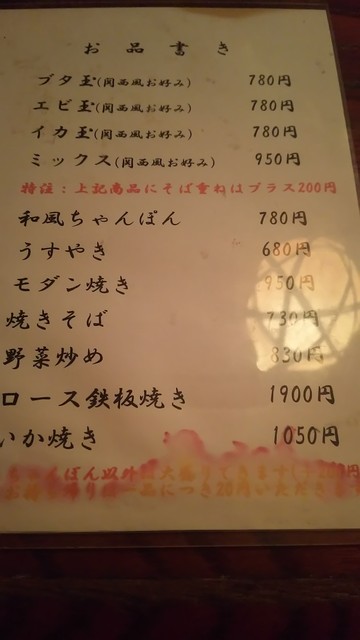 お品書き
ブタ玉(関西風お好み) 780円
エビ玉(関西風お好み) 780円
イカ玉(関西風お好み) 780円
ミックス(関西風お好み) 950円
特注:上記商品にそば重ねはプラス200円
和風ちゃんぽん 780円
うすやき 680円
モダン焼き 950円
焼きそば 730円
野菜炒め 830円
ロース鉄板焼き 1900円
いか焼き 1050円
ちゃんぽん以外 大盛りできます
お持ち帰りは一品につき20円いただきます